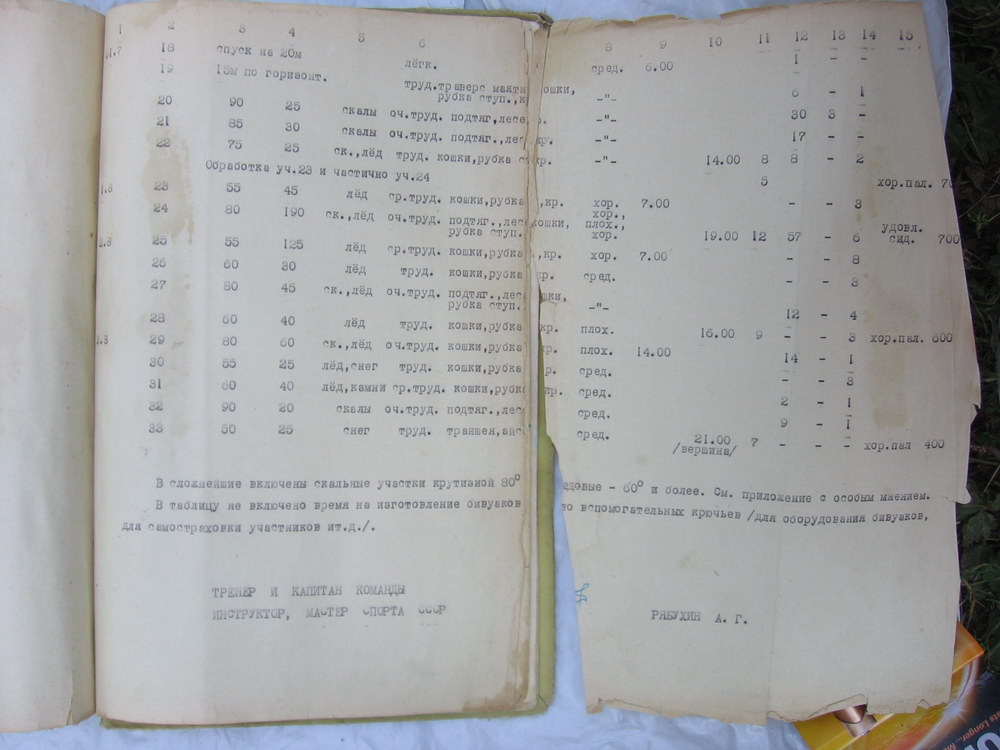 1 2 3 4 5 6 8 9 10 11 12 13 14 15
18 спуск на 20м лёгк. сред. 6.00 1 - -
19 15м по горизонт. труд. траверс маятн ошки,
рубка ступ.,к -"- 6 - 1
20 90 25 скалы оч.труд. подтяг,лесе -"- 30 3 -
21 85 30 скалы оч.труд. подтяг.,лес -"- 17 - -
22 75 25 ск.,лёд труд. кошки,рубка кр. -"- 14.00 8 8 - 2
Обработка уч.23 и частично уч.24 5 хор.пал.
23 55 45 лёд ср.труд. кошки,рубка ,кр. хор. 7.00 - - 3
24 80 190 ск.,лёд оч.труд. подтяг.,лес кошки, хор., плох.,
рубка ступ. хор. 19.00 12 57 - 6 удовл. сид. 700
25 55 125 лёд ср.труд. кошки,рубка ,кр. хор. 7.00 - - 8
26 60 30 лёд труд. кошки,рубка кр. сред. - - 3
27 80 45 ск.,лёд оч.труд. подтяг.,лес шки,
рубка ступ. -"- 12 - 4
28 60 40 лёд труд. кошки,рубка кр. плох. 16.00 9 - - 3 хор.пал. 600
29 80 60 ск.,лёд оч.труд. кошки,рубка р. плох. 14.00 14 - 1
30 55 25 лёд,снег труд. кошки,рубка р. сред. - - 3
31 60 40 лёд,камни ср.труд. кошки,рубк кр. сред. 2 - 1
32 90 20 скалы оч.труд. подтяг.,лес сред. 9 - 1
33 50 25 снег труд. траншея, сред. 21.00 7 - - - хор.пал 400
/вершина/
В сложнейшие включены скальные участки крутизной 80° едовые - 60° и более. См. приложение с особым мнением.
В таблицу не включено время на изготовление бивуаков во вспомогательных крючьев /для оборудования бивуаков,
для самостраховки участников ит.д./.
ТРЕНЕР И КАПИТАН КОМАНДЫ
ИНСТРУКТОР, МАСТЕР СПОРТА СССР РЯБУХИН А. Г.